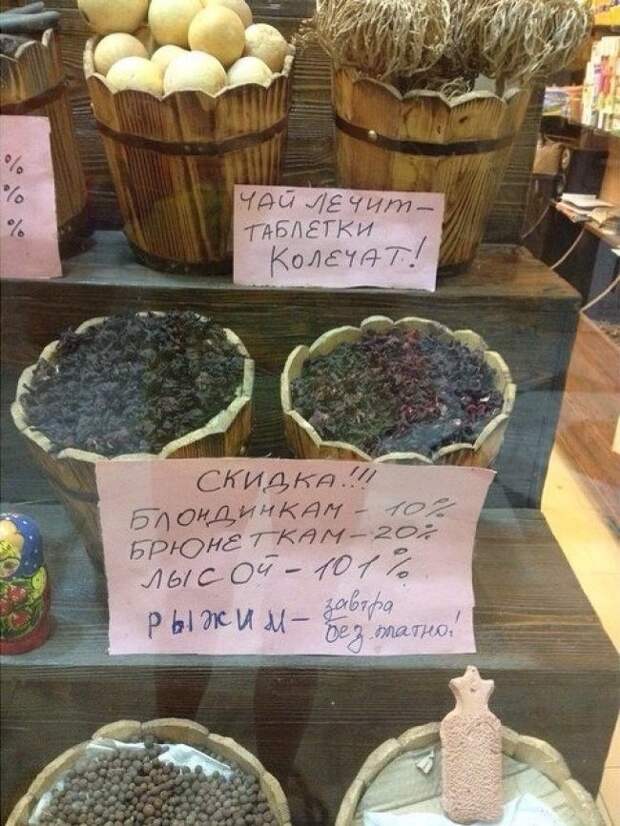 %
%
%
ЧАЙ ЛЕЧИТ-
ТАБЛЕТКИ
КОЛЕЧАТ!
СКИДКА!!!
БЛОНДИНКАМ - 10%
БРЮНЕТКАМ - 20%
ЛЫСОЙ - 101%
РЫЖИМ - завтра
без платно!